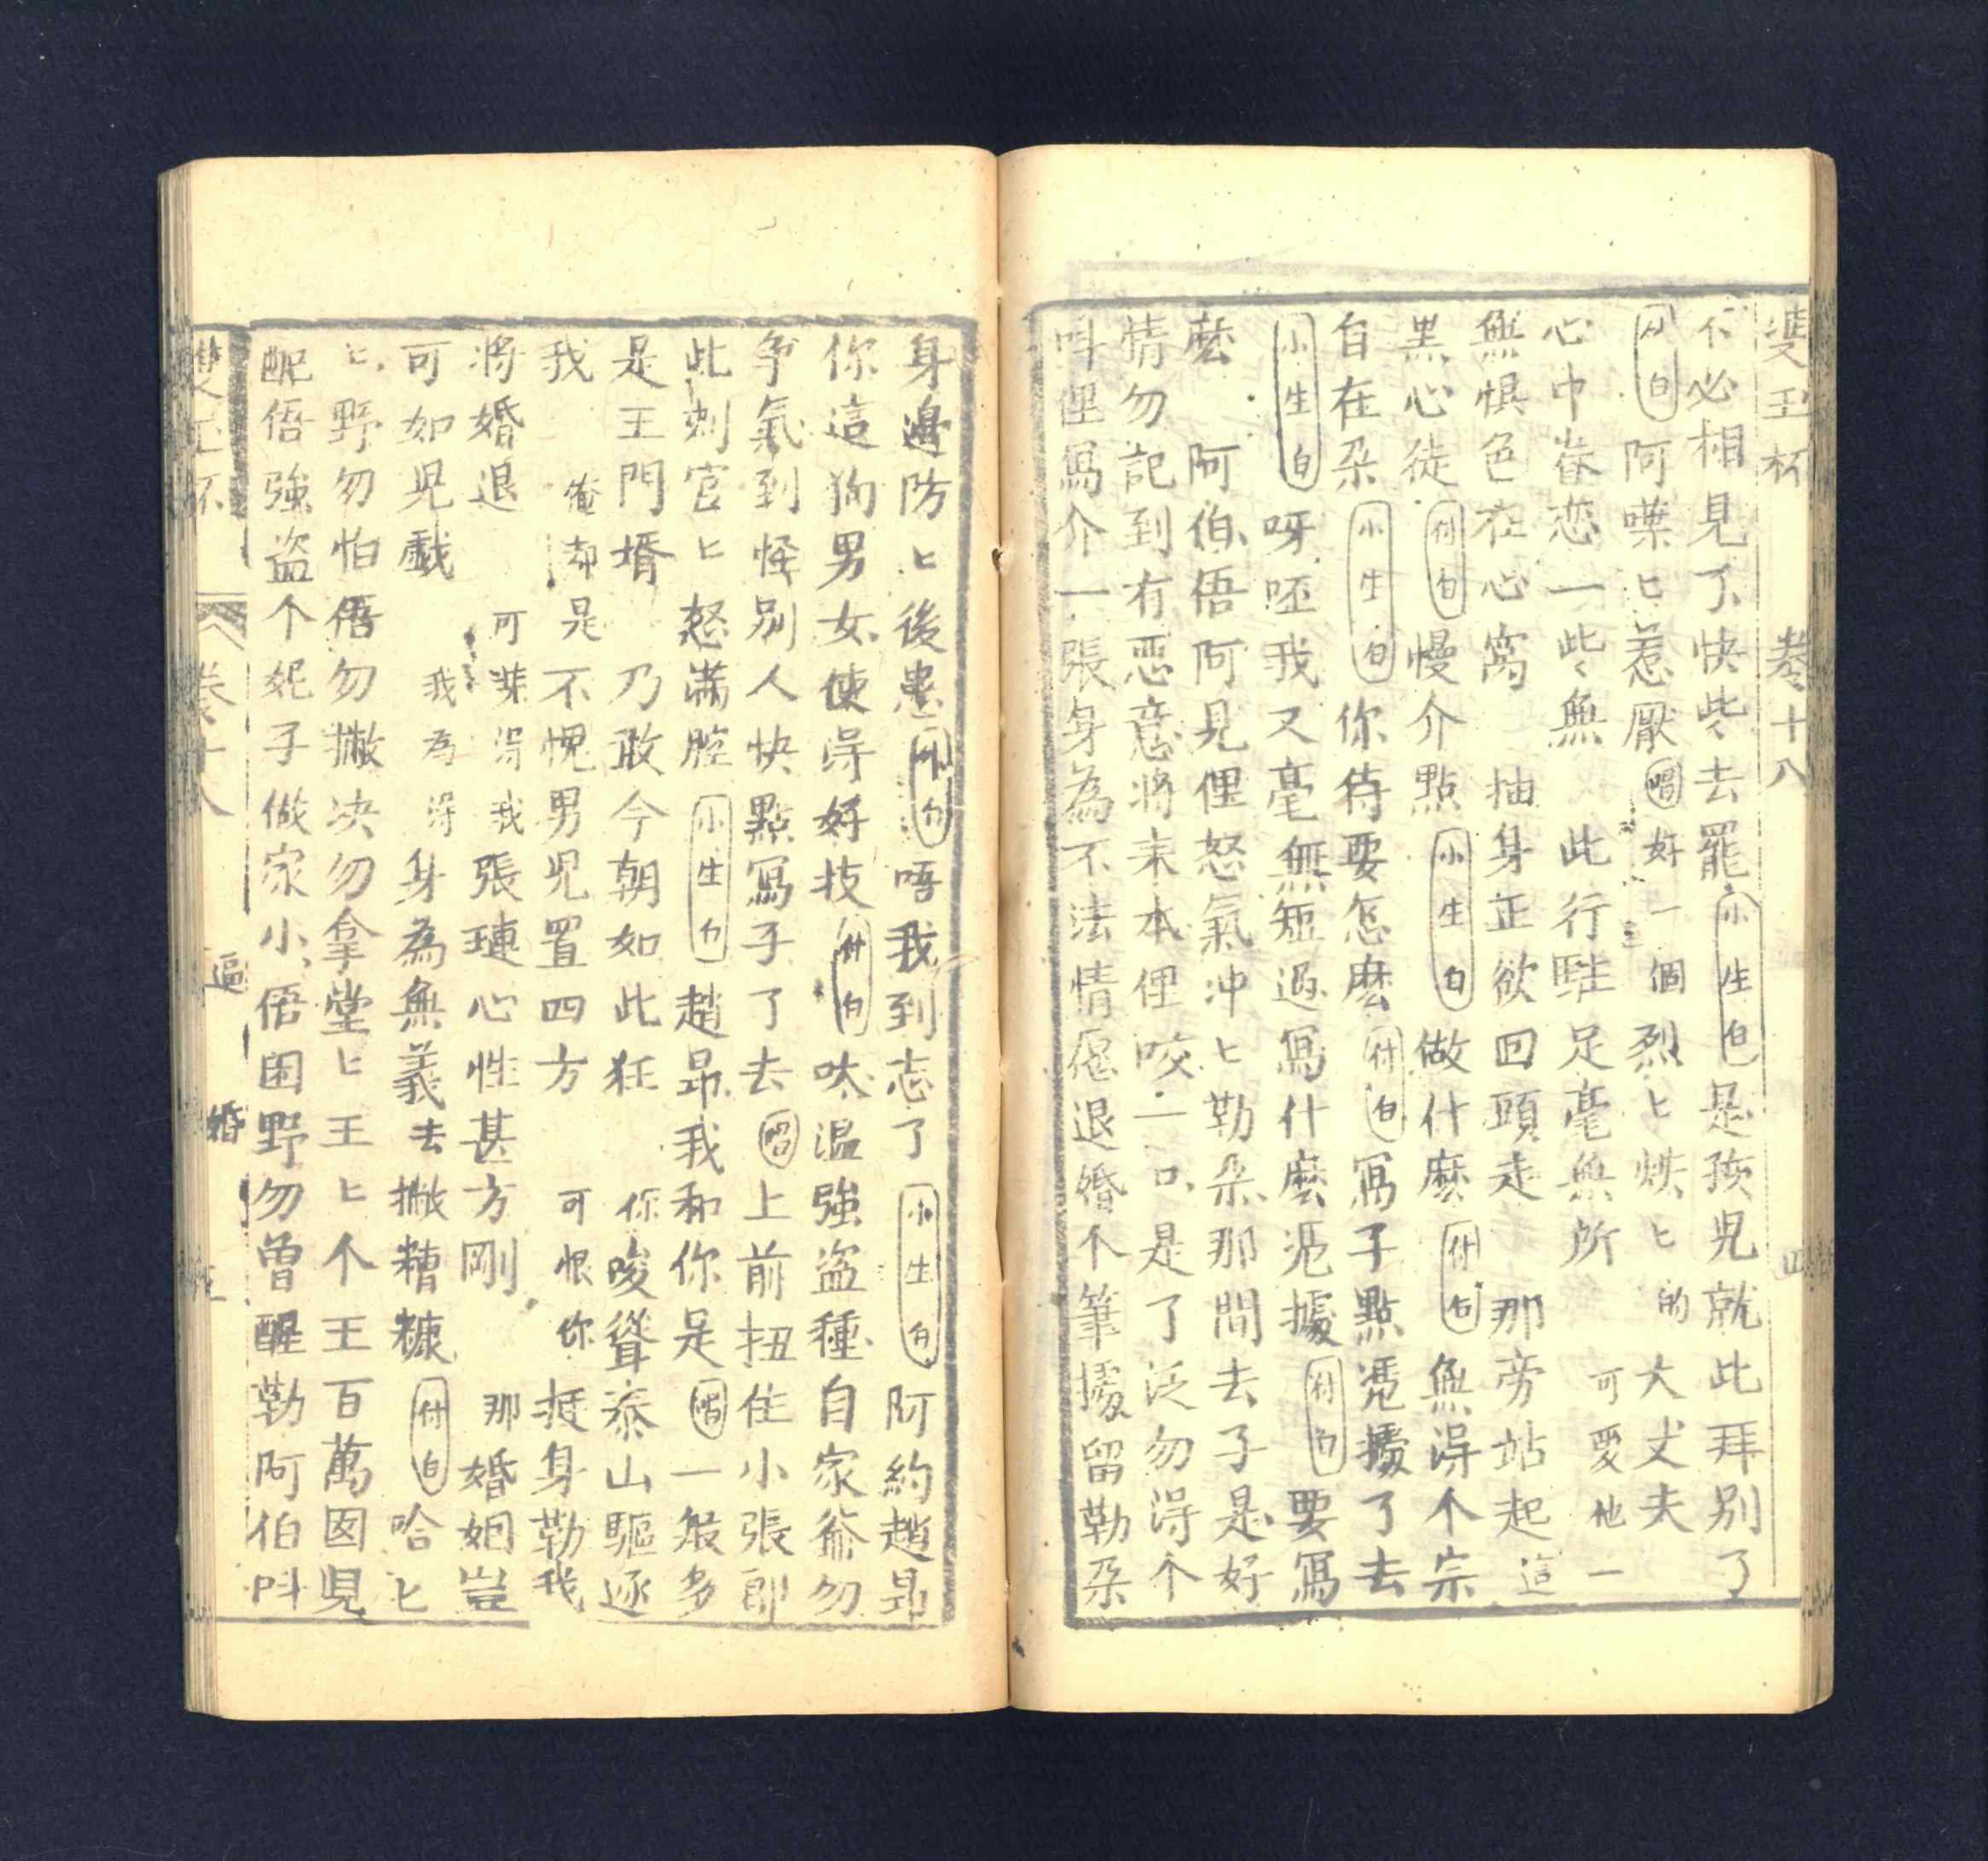 雙玉杯 卷十八 四
不必相見了快些去罷小生白是孩兒就此拜別了
白阿㗼匕惹厭唱好一個烈匕烘匕的大丈夫可愛他一
心中眷恋一些無此行駐足毫無所
無惧色在心窩抽身正欲回頭走那旁站起這
黑心徒付白慢介點小生白做什麽付白無淂个宗
自在朶小生白你待要怎麽付白寫子點凴據了去
小生白呀呸我又毫無短過寫什麽凴據付白要寫
麽阿伯俉阿見俚怒氣冲匕勒朶那問去子是好
情勿記到有恶意將来本俚咬一口是了泛勿淂个
呌俚寫介一張身為不法情愿退婚个筆據留勒朶
身邊防匕後患付白唔我到忘了小生白阿約趙昻
你這狗男女使淂好技付白呔温強盗種自家爺勿
争氣到怪别人快點寫子了去唱上前扭住小張郎
此刻官匕怒滿腔小生白趙昻我和你是唱一般多
是王門壻乃敢今朝如此狂你唆聳泰山驅逐
我俺却是不愧男兒置四方可恨你挺身勒我
將婚退可笑淂我張璉心性甚方剛那婚姻豈
可如兒戲我為淂身為無義去撇糟糠付白哈匕
匕野勿怕俉勿撇决勿拿堂匕王匕个王百萬囡兒
配俉強盗个妮子做家小俉困野勿曾醒勒阿伯呌
雙玉杯 卷十八 逼婚 五